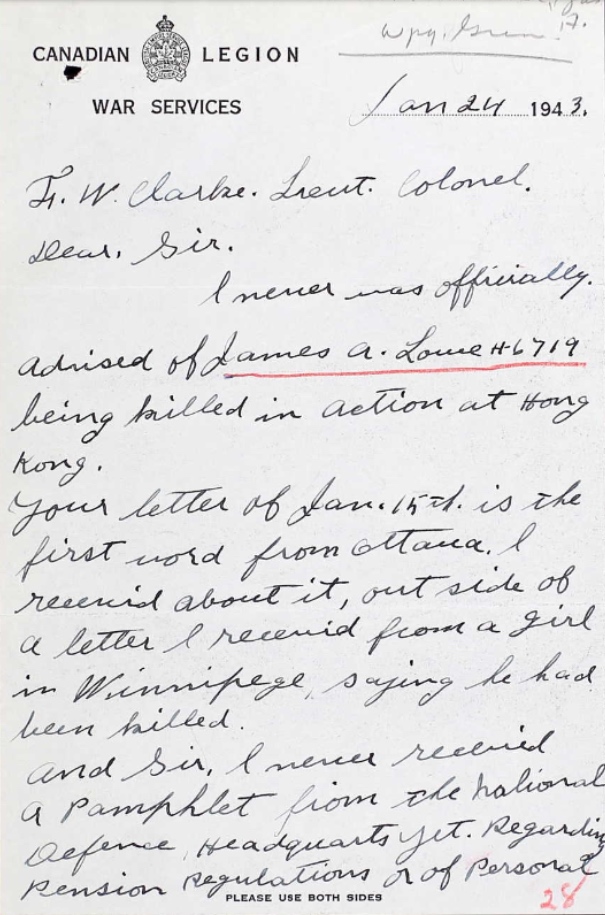 Wpg. Gren.
CANADIAN LEGION
WAR SERVICES
Jan 24 1943.
F. W. Clarke. Lieut. Colonel.
Dear. Sir.
I never was officially.
advised of James A. Lowe H6719
being killed in action at Hong
Kong.
Your letter of Jan. 15th. is the
first word from Ottawa. I
receivid about it, out side of
a letter I receivid from a girl
in Winnipege, saying he had
been killed.
And Sir, I never receivid
a Pamphlet from the National
Defence, Headquarts yet. Regarding
Pension Regulations or of Personal
PLEASE USE BOTH SIDES
28